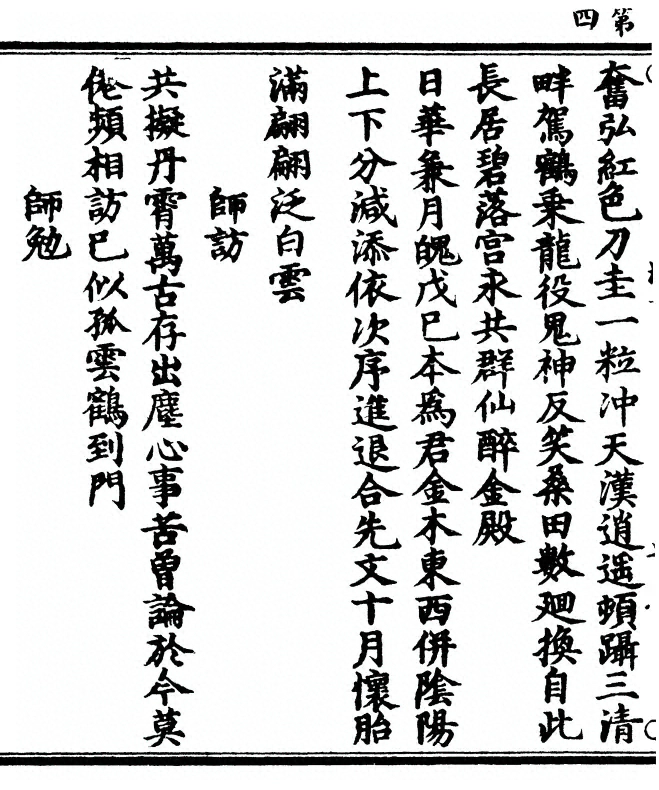 第四
奮弘紅色刀圭一粒冲天漢逍遥頓躡三清
畔駕鶴乗龍役鬼神反笑桑田數廻換自此
長居碧落宫永共群仙醉金殿
日華兼月魄戊巳本爲君金木東西併隂陽
上下分減添依次序進退合先文十月懷胎
滿翩翩泛白雲
師訪
共擬丹霄萬古存出塵心事苦曽論於今莫
倦頻相訪巳似孤雲鶴到門
師勉